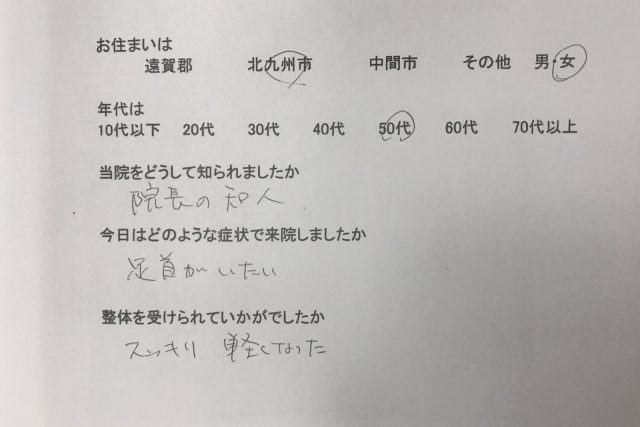 お住まいは
遠賀郡 北九州市 中間市 その他 男・女
年代は
10代以下 20代 30代 40代 50代 60代 70代以上
当院をどうして知られましたか
院長の知人
今日はどのような症状で来院しましたか
足首がいたい
整体を受けられていかがでしたか
スッキリ 軽くなった